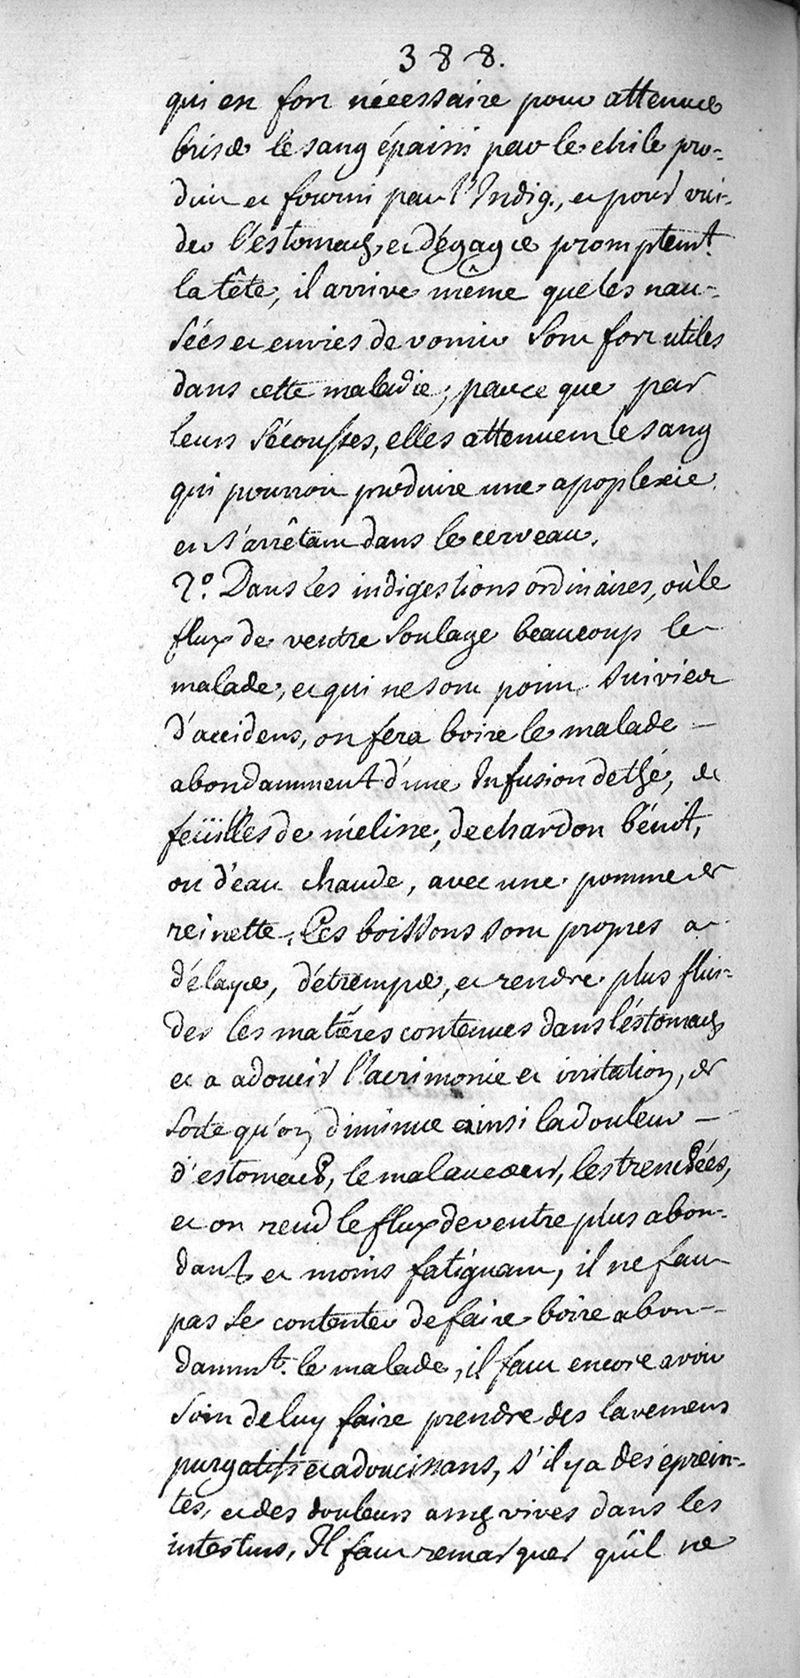 388.
qui est fort nécessaire pour attenuer
briser le sang épaissi par le chile pro-
duit et fourni par l'Indig., et pour vui-
der l'estomach, et dégager promptemt.
la tête, il arrive même que les nau-
sées et envies de vomir sont fort utiles
dans cette maladie, parce que par
leurs sécousses, elles attenuent le sang
qui pourroit produire une apoplexie
en s'arrêtant dans le cerveau.
2º. Dans les indigestions ordinaires, où le
flux de ventre soulage beaucoup le
malade, et qui ne sont point suivies
d'accidens, on fera boire le malade
abondamment d'une Infusion de thé, de
feüilles de mélisse, de chardon bénit,
ou d'eau chaude, avec une pomme de
reinette. Ces boissons sont propres a
délayer, détremper, et rendre plus flui-
des les matiéres contenues dans l'éstomach
et a adoucir l'acrimonie et irritation, de
sorte qu'on diminue ainsi la douleur
d'estomach, le mal au coeur, les trenchées,
et on rend le flux de ventre plus abon-
dant et moins fatiguant, il ne faut
pas se contenter de faire boire abon-
dammt. le malade, il faut encore avoir
soin de luy faire prendre des lavemens
purgatifs et adoucissans, s'il y a des éprein-
tes, et des douleurs vives dans les
intestins, Il faut remarquer qu'il ne